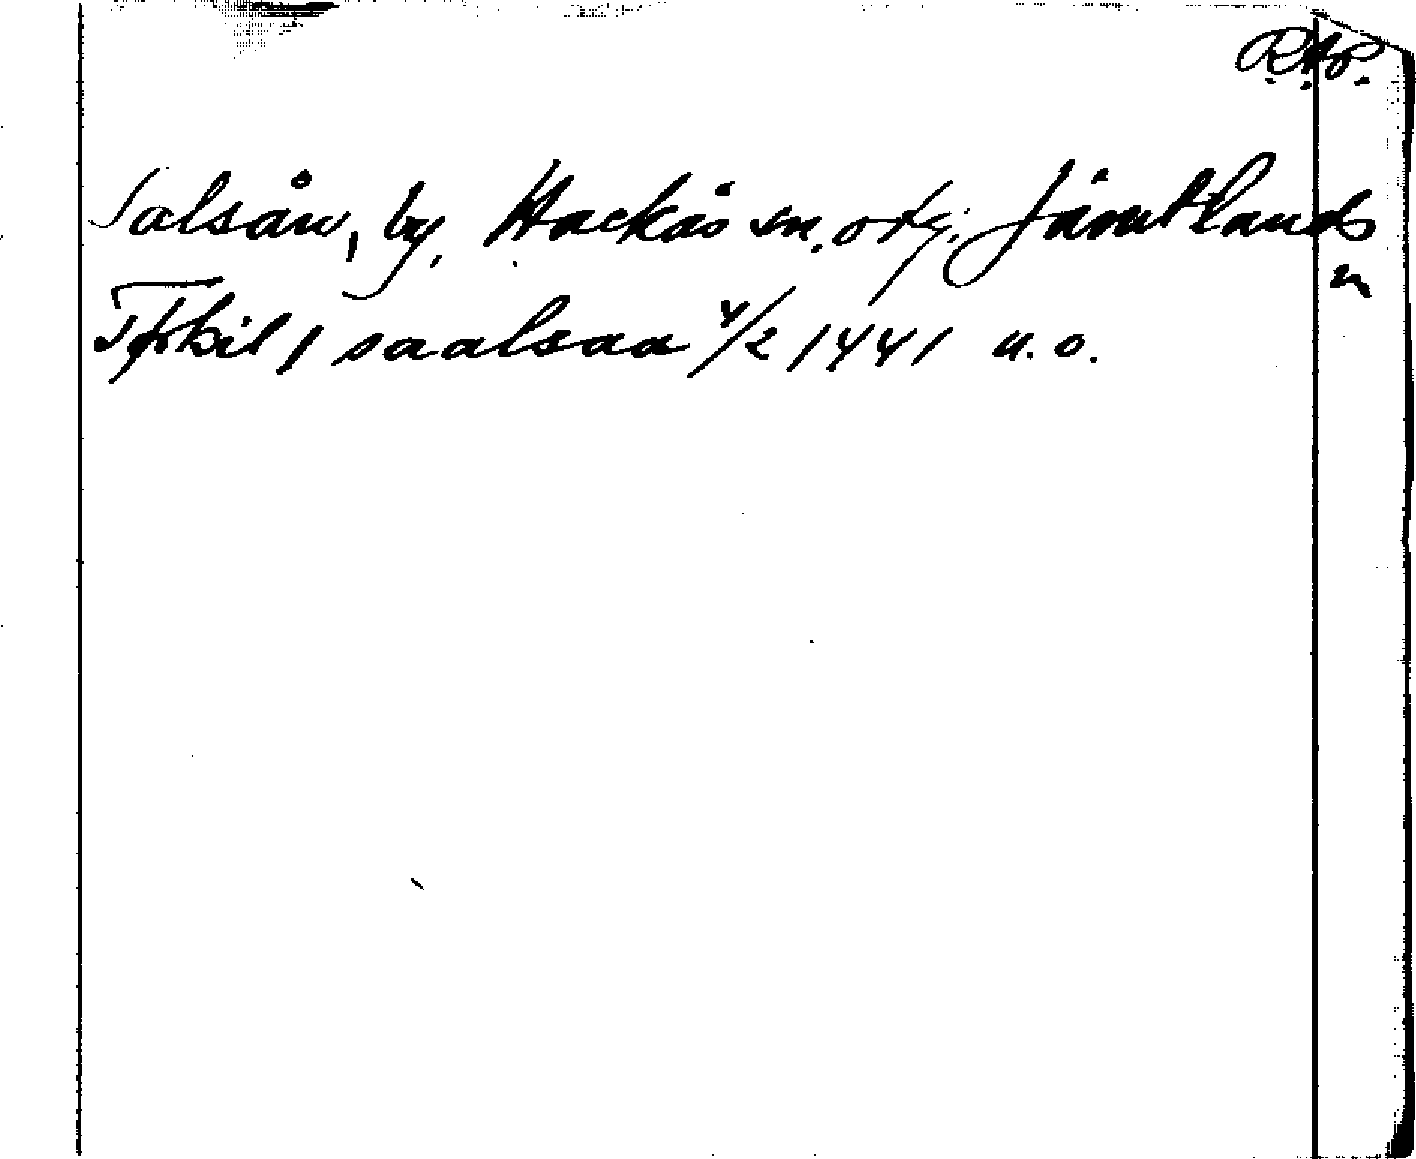 R.A.P.
Salsån, by, Hackås sn, o tg. Jämtlands
n
Tyrkil j saalsaa 4/2 1441 u.o.